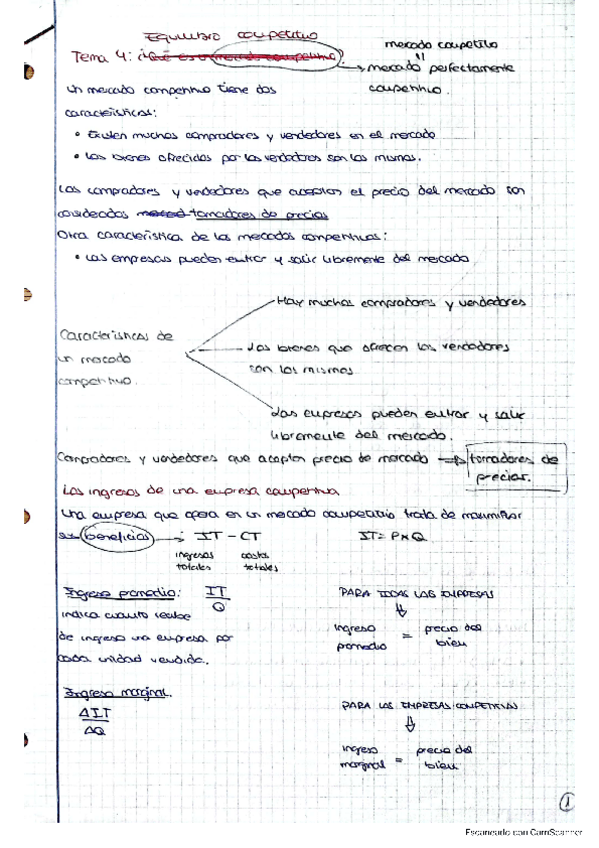 Equilibrio competitivo
Tema 4: ¿Qué es un mercado competitivo?
mercado competitivo
"
mercado perfectamente
competitivo.
Un mercado competitivo tiene dos
características:
• Existen muchos compradores y vendedores en el mercado
• Los bienes ofrecidos por los vendedores son los mismos.
Los compradores y vendedores que aceptan el precio del mercado son
considerados tomadores de precios
Otra característica de los mercados competitivos:
• Las empresas pueden entrar y salir libremente del mercado
Características de
un mercado
competitivo.
Hay muchos compradores y vendedores
Los bienes que ofrecen los vendedores
son los mismos
Las empresas pueden entrar y salir
libremente del mercado.
Compradores y vendedores que aceptan precio de mercado → tomadores de
precios.
Los ingresos de una empresa competitiva
Una empresa que opera en un mercado competitivo trata de maximizar
sus beneficios → IT - CT
ingresos totales
costes totales
IT = P×Q
Ingreso promedio: IT
Q
indica cuanto recibe
de ingreso una empresa por
cada unidad vendida.
PARA TODAS LAS EMPRESAS
⇓
ingreso promedio = precio del bien
Ingreso marginal.
ΔIT
ΔQ
PARA LAS EMPRESAS COMPETITIVAS
⇓
ingreso marginal = precio del bien
1
Escaneado con CamScanner